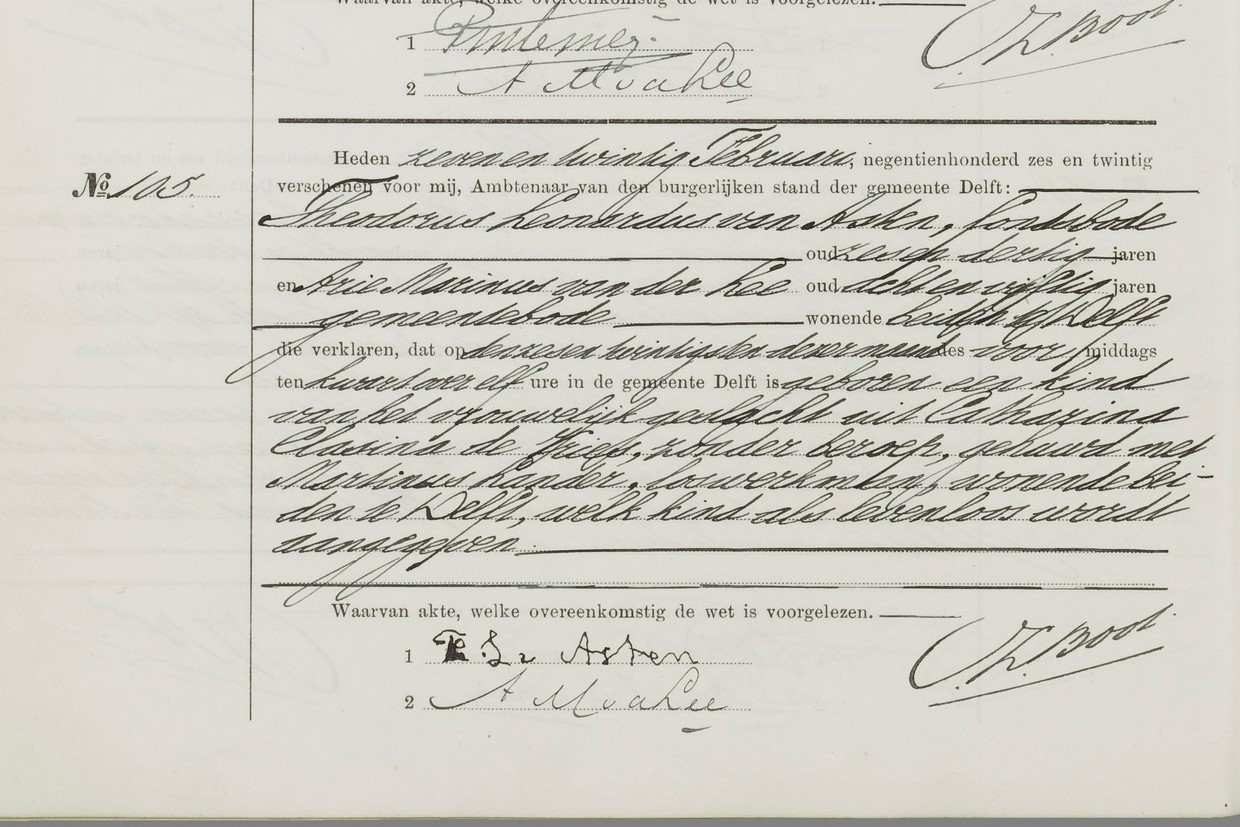 Waarvan akte, welke overeenkomstig de wet is voorgelezen.
1
2 A M vd Lee
Th. Boot
Heden zeven en twintig Februari, negentienhonderd zes en twintig
No 105 verschenen voor mij, Ambtenaar van den burgerlijken stand der gemeente Delft:
Theodorus Leonardus van Asten, fondsbode
oud zes en dertig jaren
en Arie Marinus van der Lee oud acht en vijftig jaren
gemeentebode wonende beiden te Delft
die verklaren, dat op den zes en twintigsten dezer maand des voor middags
ten kwart over elf ure in de gemeente Delft is geboren een kind
van het vrouwelijk geslacht uit Catharina
Clasina de Vries, zonder beroep, gehuwd met
Martinus Kander, bouwerkman, wonende bei-
den te Delft, welk kind als levenloos wordt
aangegeven.
Waarvan akte, welke overeenkomstig de wet is voorgelezen.
1 T L v Asten
2 A M vd Lee
Th. Boot